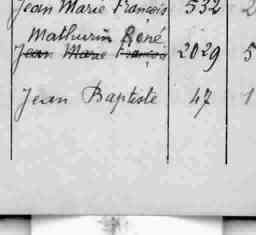 Jean Marie François 532 2
Mathurin René
Jean Marie François 2029 5
Jean Baptiste 47 1